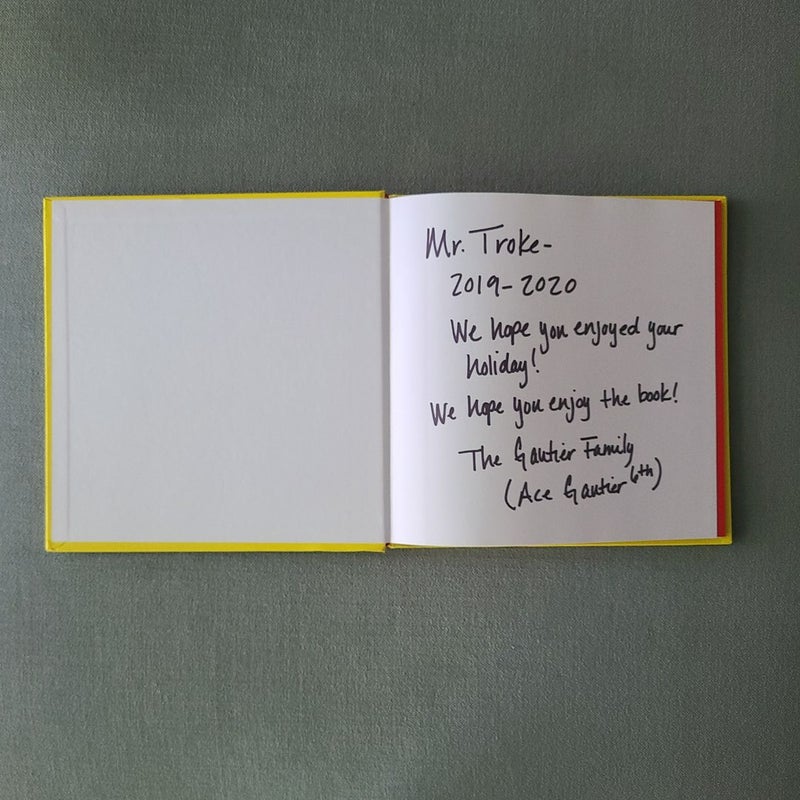 Mr. Troke-
2019-2020
We hope you enjoyed your
holiday!
We hope you enjoy the book!
The Gautier Family
(Ace Gautier 6th)